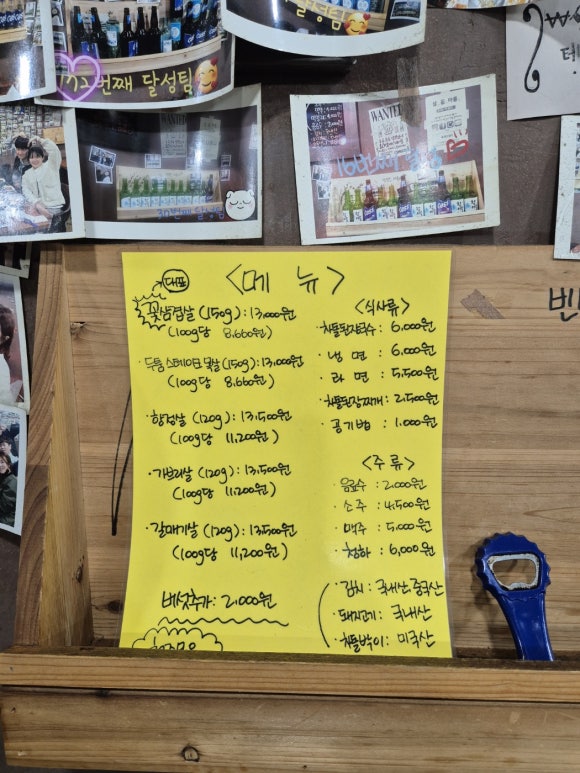 번째 달성팀
달성팀
30번째 달성팀
WANTED
16번째
테
벤
<메 뉴>
대표
꽃삼겹살 (150g) : 13,000원
(100g당 8,660원)
· 두툼 스테이크 목살 (150g) : 13,000원
(100g당 8,660원)
· 항정살 (120g) : 13,500원
(100g당 11,200원)
· 가브리살 (120g) : 13,500원
(100g당 11,200원)
· 갈매기살 (120g) : 13,500원
(100g당 11,200원)
버섯추가 : 2,000원
<식사류>
· 차돌된장국수 : 6,000원
· 냉 면 : 6,000원
· 라 면 : 5,500원
· 차돌된장찌개 : 2,500원
· 공기밥 : 1,000원
<주 류>
· 음료수 : 2,000원
· 소 주 : 4,500원
· 맥주 : 5,000원
· 청하 : 6,000원
· 김치 : 국내산, 중국산
· 돼지고기 : 국내산
· 차돌박이 : 미국산